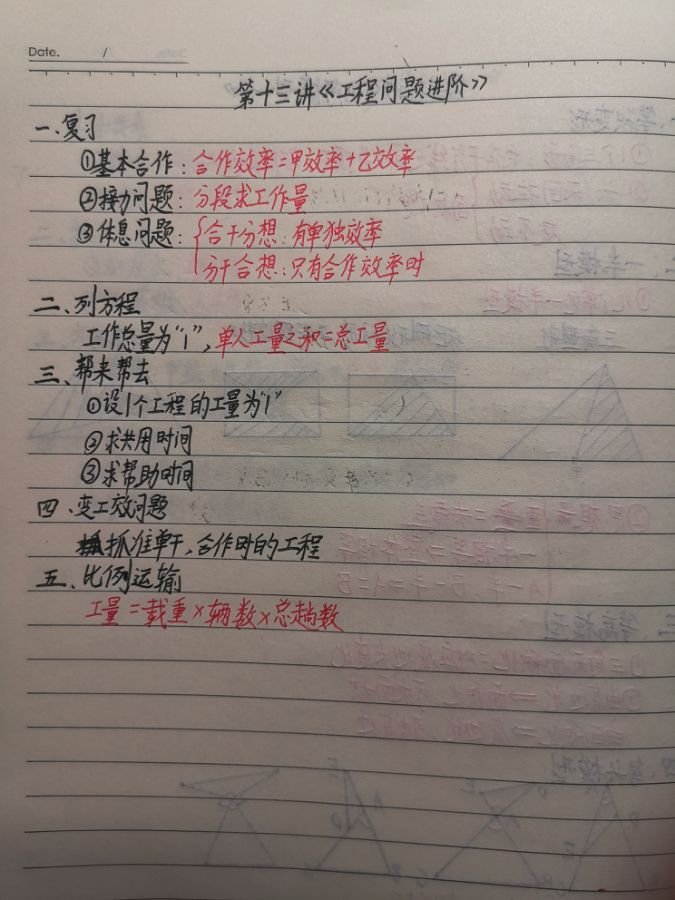 Date. /
第十三讲《工程问题进阶》
一、复习
①基本合作：合作效率=甲效率+乙效率
②接力问题：分段求工作量
③休息问题：{合干分想：有单独效率
分干合想：只有合作效率时
二、列方程
工作总量为"1"，单人工量之和=总工量
三、帮来帮去
①设1个工程的工量为"1"
②求共用时间
③求帮助时间
四、变工效问题
抓准单干，合作时的工程
五、比例运输
工量=载重×辆数×总趟数